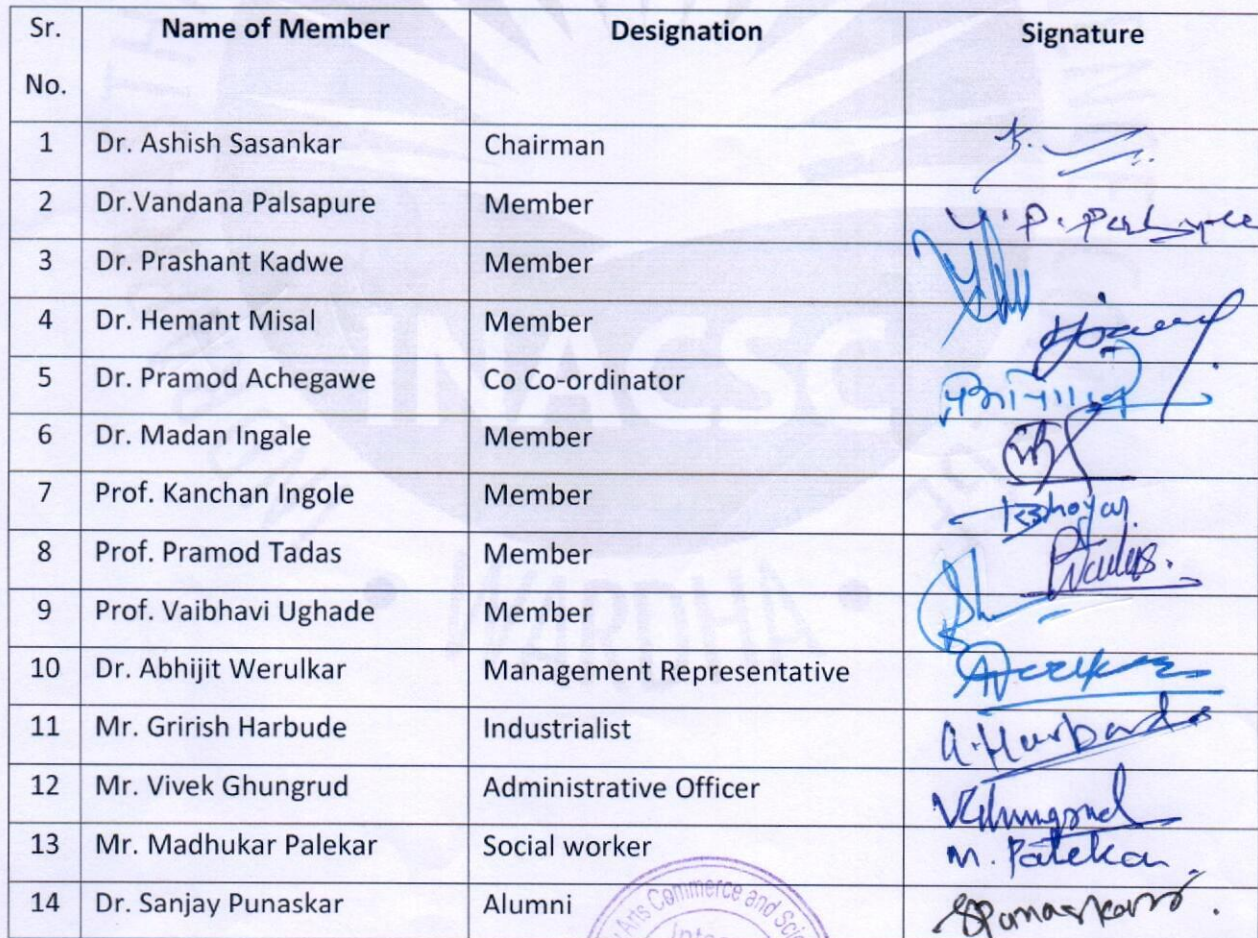 Sr. No. Name of Member Designation Signature
1 Dr. Ashish Sasankar Chairman
2 Dr.Vandana Palsapure Member
3 Dr. Prashant Kadwe Member
4 Dr. Hemant Misal Member
5 Dr. Pramod Achegawe Co Co-ordinator
6 Dr. Madan Ingale Member
7 Prof. Kanchan Ingole Member
8 Prof. Pramod Tadas Member
9 Prof. Vaibhavi Ughade Member
10 Dr. Abhijit Werulkar Management Representative
11 Mr. Grirish Harbude Industrialist
12 Mr. Vivek Ghungrud Administrative Officer
13 Mr. Madhukar Palekar Social worker M. Palekar
14 Dr. Sanjay Punaskar Alumni
INACSC
WARDHA
Arts Commerce and